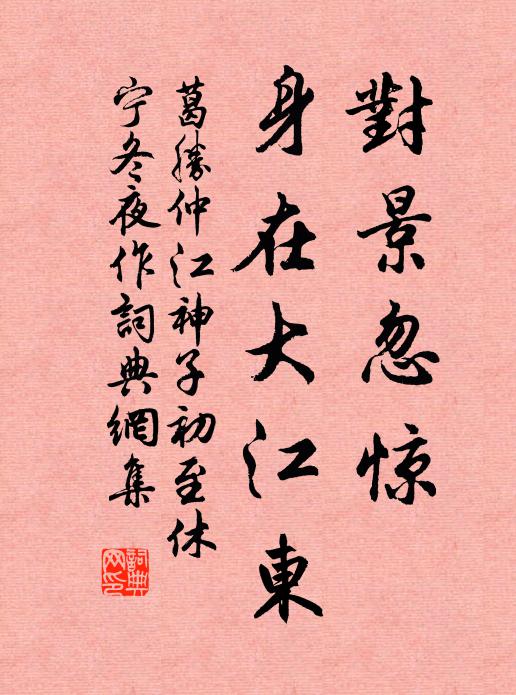 對景忽惊
身在大江東
葛勝仲江神子初至休
宁冬夜作詞典網集
詞典
网印